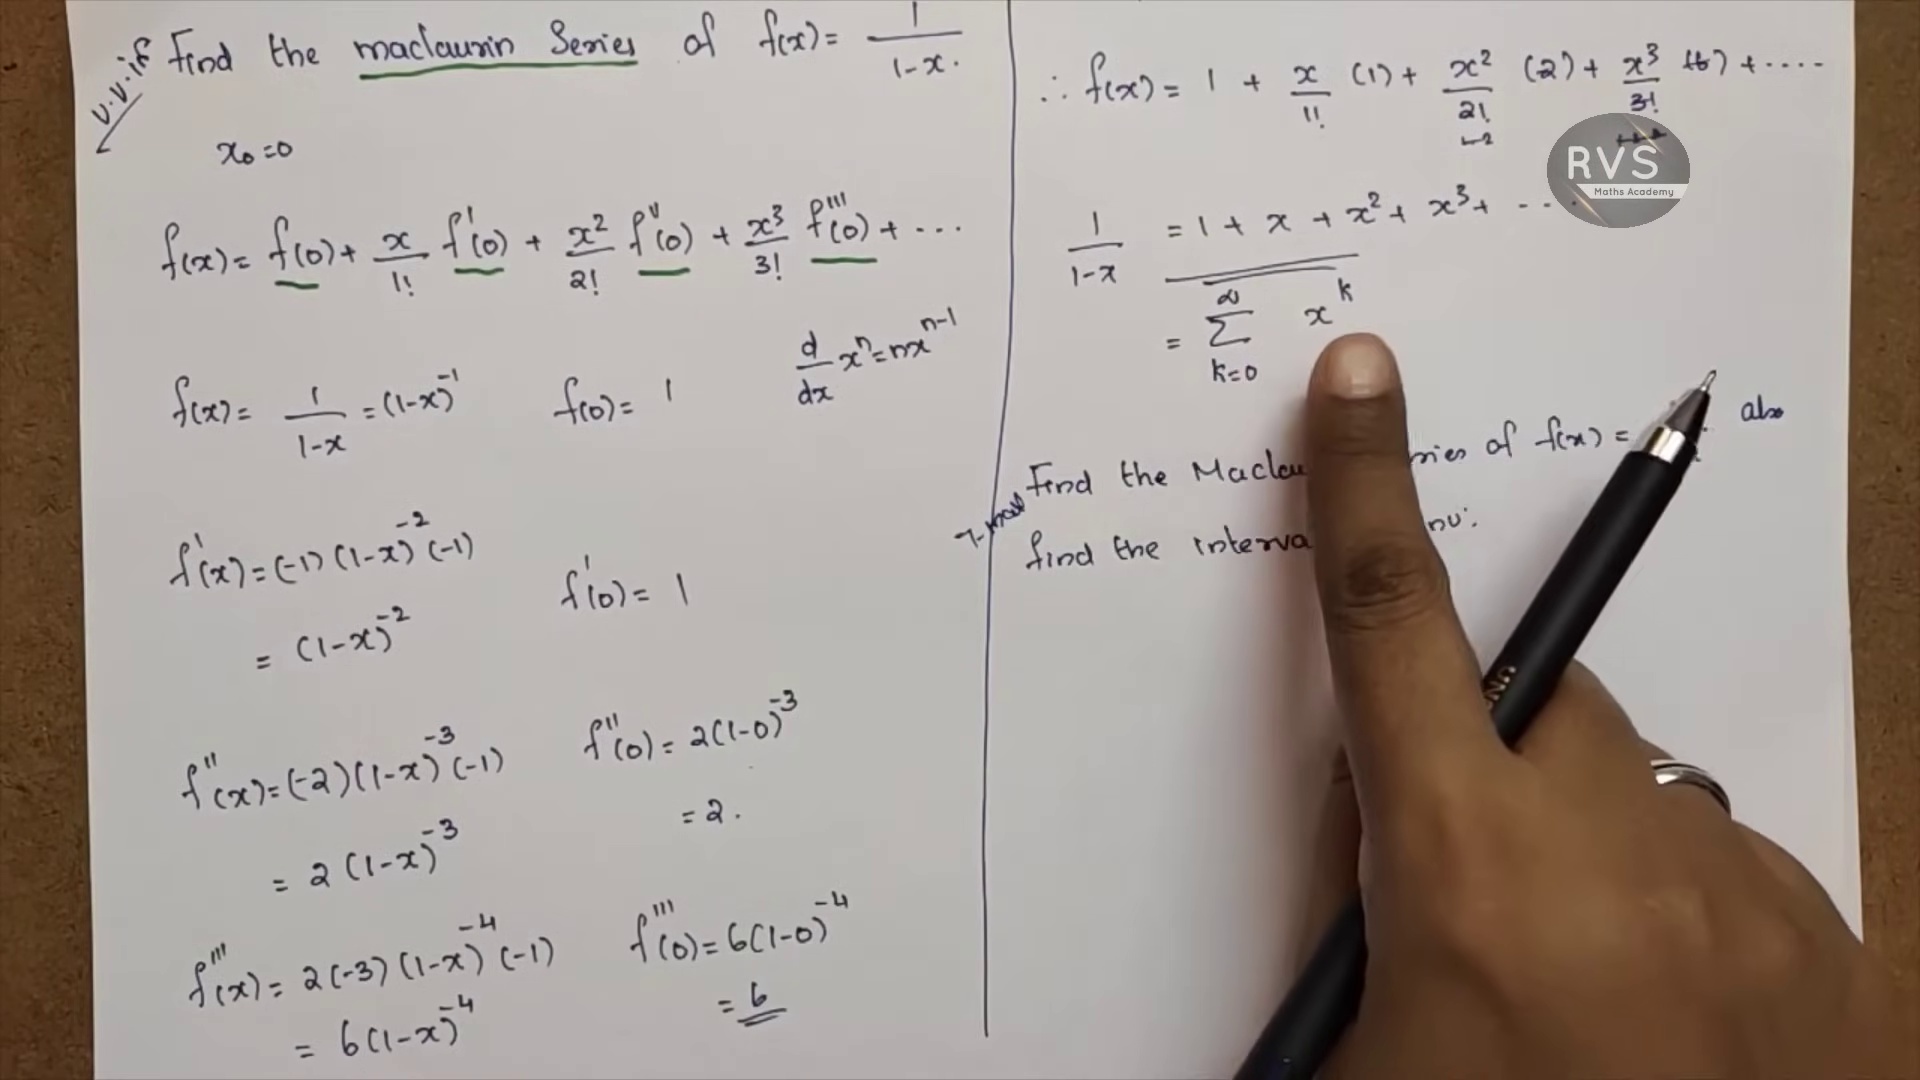 v.v.if Find the maclaurin Series of f(x) = 1/1-x.
x₀=0
f(x) = f(0) + x/1! f'(0) + x²/2! f''(0) + x³/3! f'''(0) + ...
d/dx xⁿ = nxⁿ⁻¹
f(x) = 1/1-x = (1-x)⁻¹ f(0) = 1
f'(x) = (-1)(1-x)⁻²(-1)
= (1-x)⁻² f'(0) = 1
f''(x) = (-2)(1-x)⁻³(-1) f''(0) = 2(1-0)⁻³
= 2(1-x)⁻³ = 2.
f'''(x) = 2(-3)(1-x)⁻⁴(-1) f'''(0) = 6(1-0)⁻⁴
= 6(1-x)⁻⁴ = 6
∴ f(x) = 1 + x/1! (1) + x²/2! (2) + x³/3! (6) + ....
RVS
Maths Academy
1/1-x = 1 + x + x² + x³ + ...
= ∞ Σ k=0 xᵏ
Find the of f(x) = also
find the